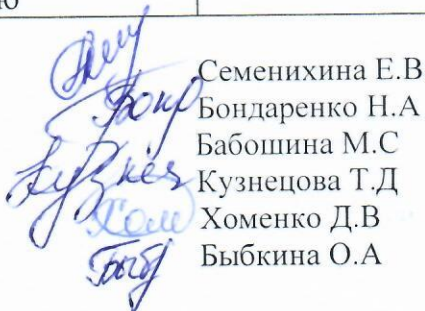 ю
Семенихина Е.В
Бондаренко Н.А
Бабошина М.С
Кузнецова Т.Д
Хоменко Д.В
Быбкина О.А